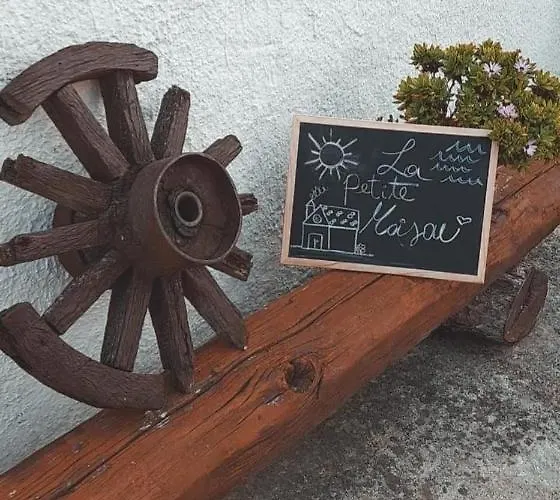 La
Petite
Maison